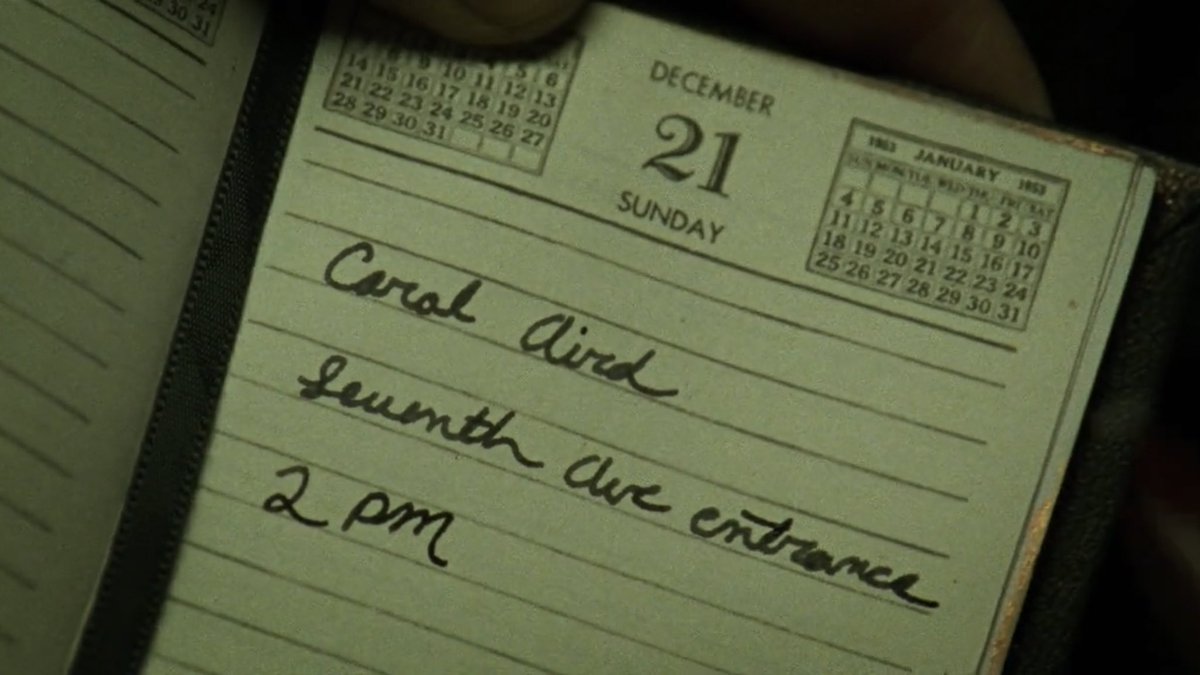 24
30 31
5 6
9 10 11 12 13
14 15 16 17 18 19 20
21 22 23 24 25 26 27
28 29 30 31
DECEMBER
21
SUNDAY
1953 JANUARY 1953
SUN MON TUE WED THU FRI SAT
1 2 3
4 5 6 7 8 9 10
11 12 13 14 15 16 17
18 19 20 21 22 23 24
25 26 27 28 29 30 31
Carol Aird
Seventh Ave entrance
2 PM